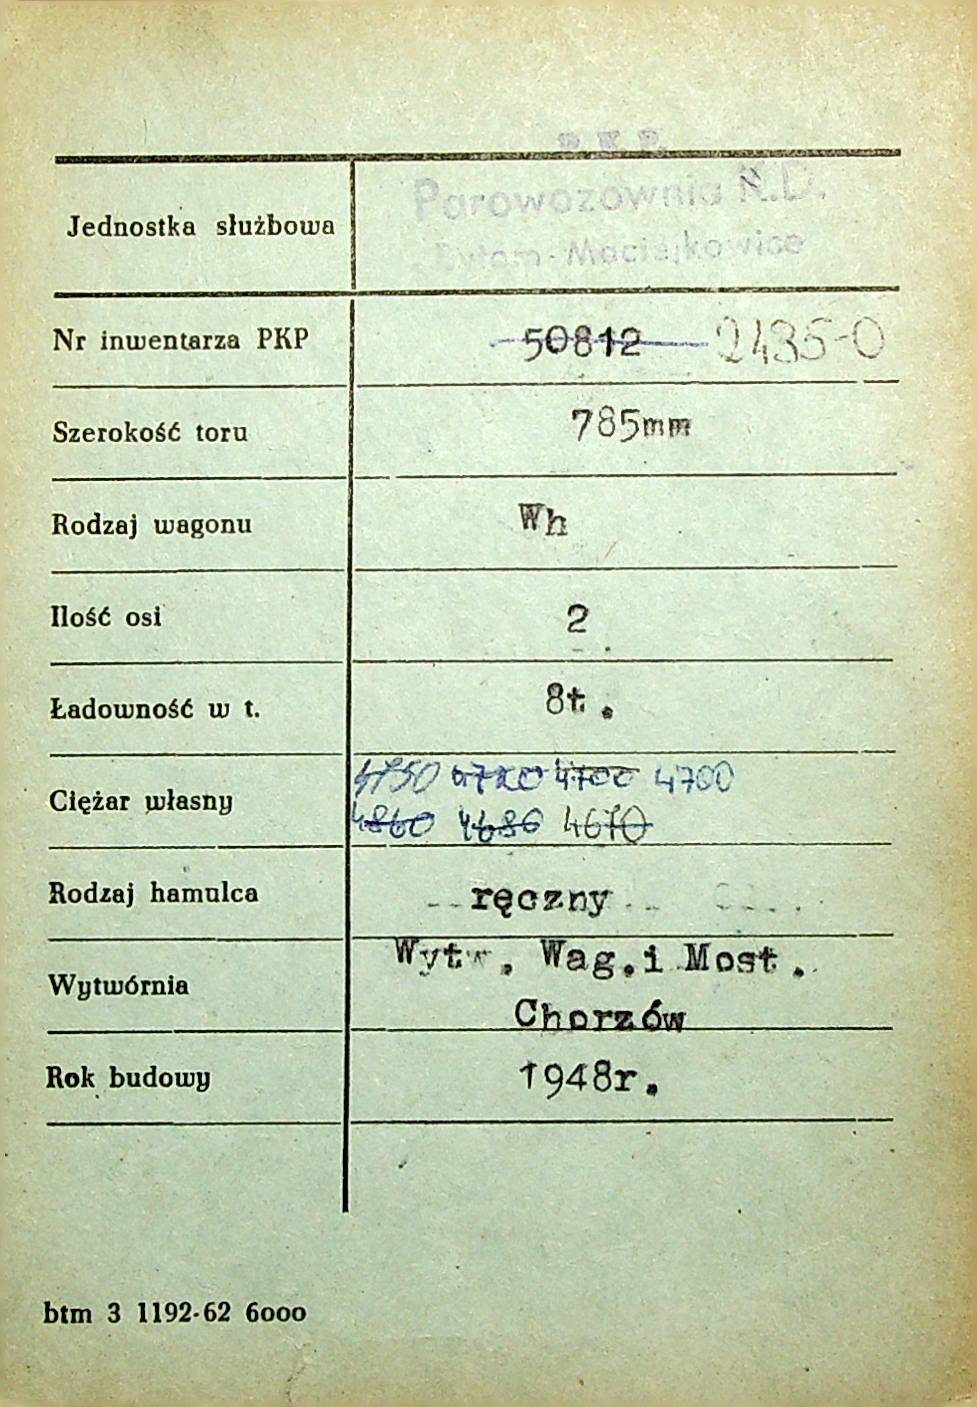 P. K. P.
Parowozownia K.D.
Jednostka służbowa
Bytom-Maciejkowice
Nr inwentarza PKP 50812 2435-0
Szerokość toru 785mm
Rodzaj wagonu Wh
Ilość osi 2
Ładowność w t. 8t.
4750 4720 4700 4700
Ciężar własny
4860 4680 4670
Rodzaj hamulca ręczny
Wytw. Wag.i Most.
Wytwórnia
Chorzów
Rok budowy 1948r.
btm 3 1192-62 6000